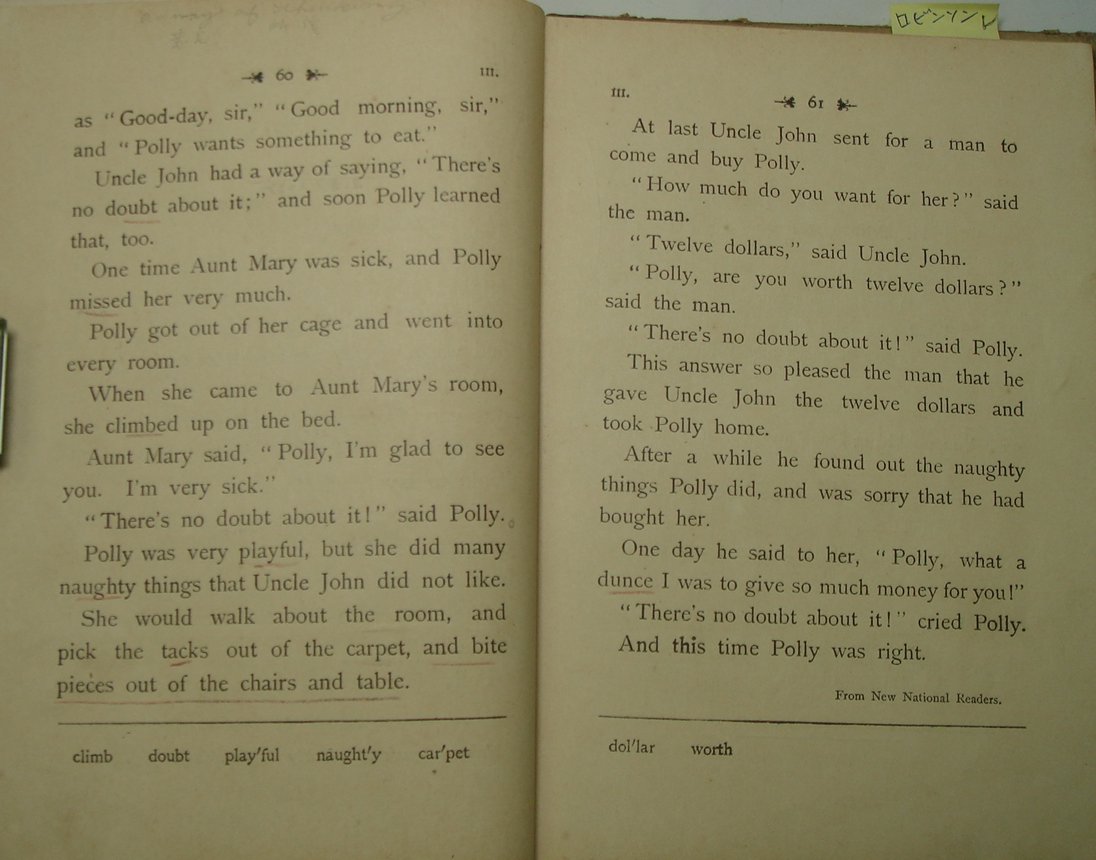 60
III.
as "Good-day, sir," "Good morning, sir,"
and "Polly wants something to eat."
Uncle John had a way of saying, "There's
no doubt about it;" and soon Polly learned
that, too.
One time Aunt Mary was sick, and Polly
missed her very much.
Polly got out of her cage and went into
every room.
When she came to Aunt Mary's room,
she climbed up on the bed.
Aunt Mary said, "Polly, I'm glad to see
you. I'm very sick."
"There's no doubt about it!" said Polly.
Polly was very playful, but she did many
naughty things that Uncle John did not like.
She would walk about the room, and
pick the tacks out of the carpet, and bite
pieces out of the chairs and table.
climb doubt play'ful naught'y car'pet
ロビンソンレ
III.
61
At last Uncle John sent for a man to
come and buy Polly.
"How much do you want for her?" said
the man.
"Twelve dollars," said Uncle John.
"Polly, are you worth twelve dollars?"
said the man.
"There's no doubt about it!" said Polly.
This answer so pleased the man that he
gave Uncle John the twelve dollars and
took Polly home.
After a while he found out the naughty
things Polly did, and was sorry that he had
bought her.
One day he said to her, "Polly, what a
dunce I was to give so much money for you!"
"There's no doubt about it!" cried Polly.
And this time Polly was right.
From New National Readers.
dol'lar worth